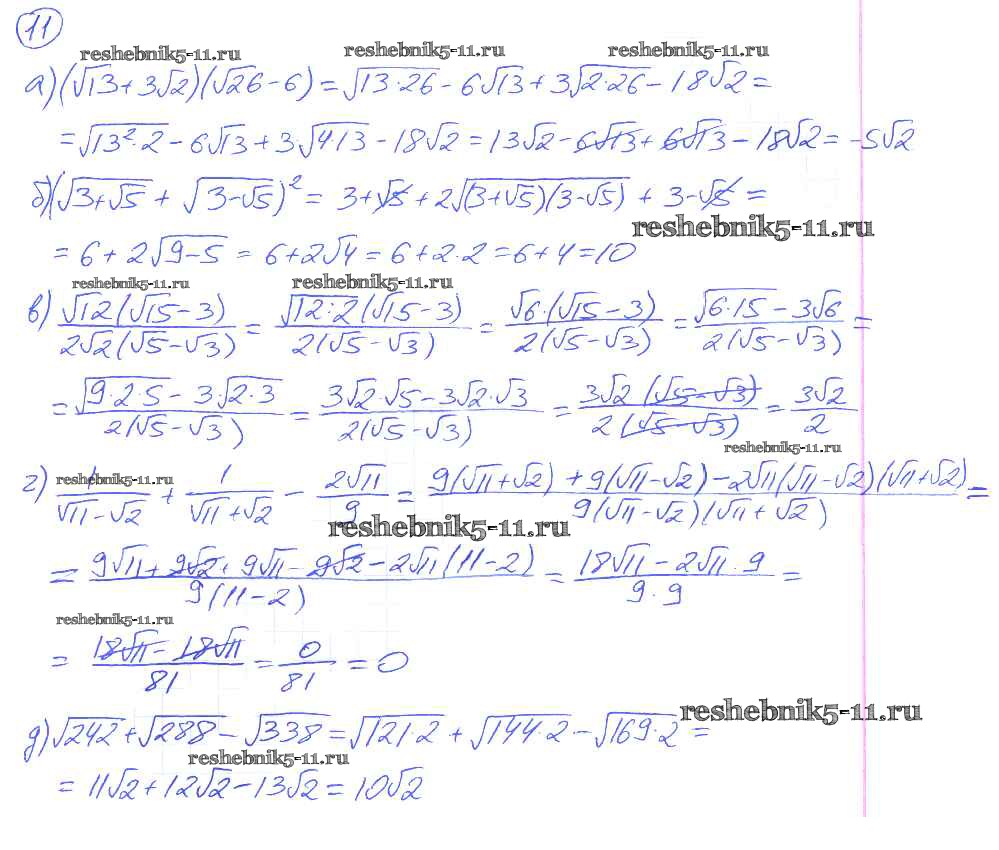 11
reshebnik5-11.ru reshebnik5-11.ru reshebnik5-11.ru
а) (√13 + 3√2)(√26 - 6) = √(13·26) - 6√13 + 3√(2·26) - 18√2 =
= √(13²·2) - 6√13 + 3√(4·13) - 18√2 = 13√2 - 6√13 + 6√13 - 18√2 = -5√2
б) (√(3+√5) + √(3-√5))² = 3+√5 + 2√((3+√5)(3-√5)) + 3-√5 =
reshebnik5-11.ru
= 6 + 2√(9-5) = 6+2√4 = 6+2·2 = 6+4 = 10
reshebnik5-11.ru reshebnik5-11.ru
в) √12(√15-3)/2√2(√5-√3) = √(12:2)(√15-3)/2(√5-√3) = √6·(√15-3)/2(√5-√3) = (√(6·15) - 3√6)/2(√5-√3) =
= (√(9·2·5) - 3√(2·3))/2(√5-√3) = (3√2·√5 - 3√2·√3)/2(√5-√3) = 3√2(√5-√3)/2(√5-√3) = 3√2/2
reshebnik5-11.ru
reshebnik5-11.ru
г) 1/(√11-√2) + 1/(√11+√2) - 2√11/9 = (9(√11+√2) + 9(√11-√2) - 2√11(√11-√2)(√11+√2))/9(√11-√2)(√11+√2) =
reshebnik5-11.ru
= (9√11 + 9√2 + 9√11 - 9√2 - 2√11(11-2))/9(11-2) = (18√11 - 2√11·9)/9·9 =
reshebnik5-11.ru
= (18√11 - 18√11)/81 = 0/81 = 0
reshebnik5-11.ru
д) √242 + √288 - √338 = √(121·2) + √(144·2) - √(169·2) =
reshebnik5-11.ru
= 11√2 + 12√2 - 13√2 = 10√2